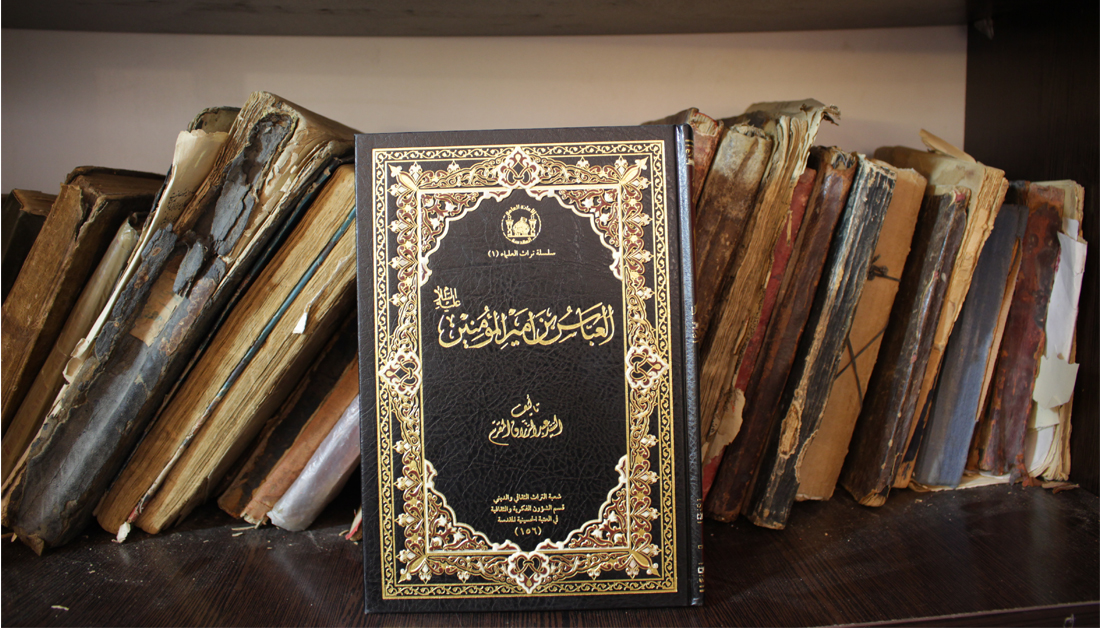 سلسلة تراث العلماء (١)
العباس بن أمير المؤمنين
عليه السلام
تأليف
السيد عبد الرزاق المقرم
شعبة التراث الثقافي والديني
قسم الشؤون الفكرية والثقافية
في العتبة الحسينية المقدسة
(١٥٦)